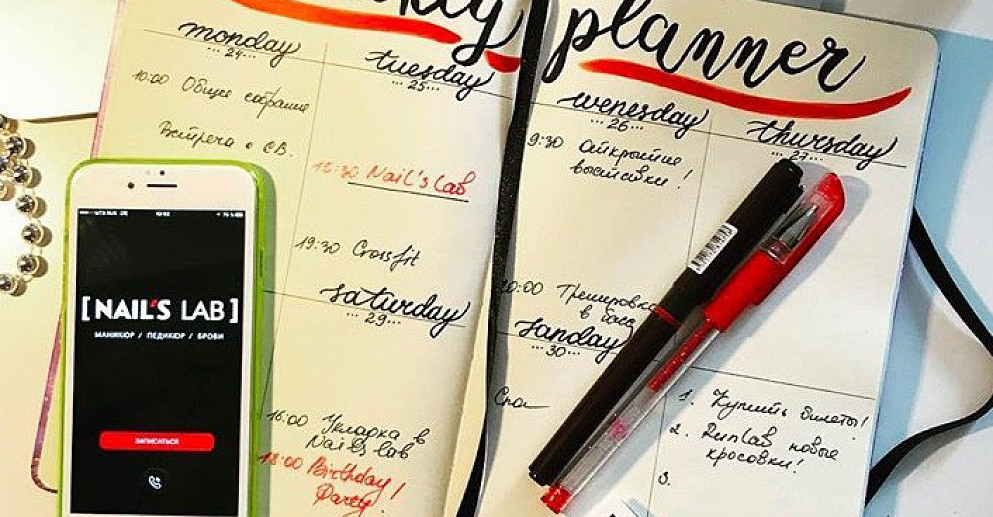 planner
monday
24
10:00 Общее собрание
Встреча с СВ.
tuesday
25
15:30 Nail's Lab
19:30 Crossfit
wenesday
26
9:30
выставки!
20:00 Тренировка
в басс
thursday
27
saturday
29
16:00 Укладка в
Nail's lab
18:00 Birthday!
Party.
sanday
30
1. Купить билеты!
2. RunLab новые
кросовки!
3.
[NAIL'S LAB]
МАНИКЮР / ПЕДИКЮР / БРОВИ
ЗАПИСАТЬСЯ